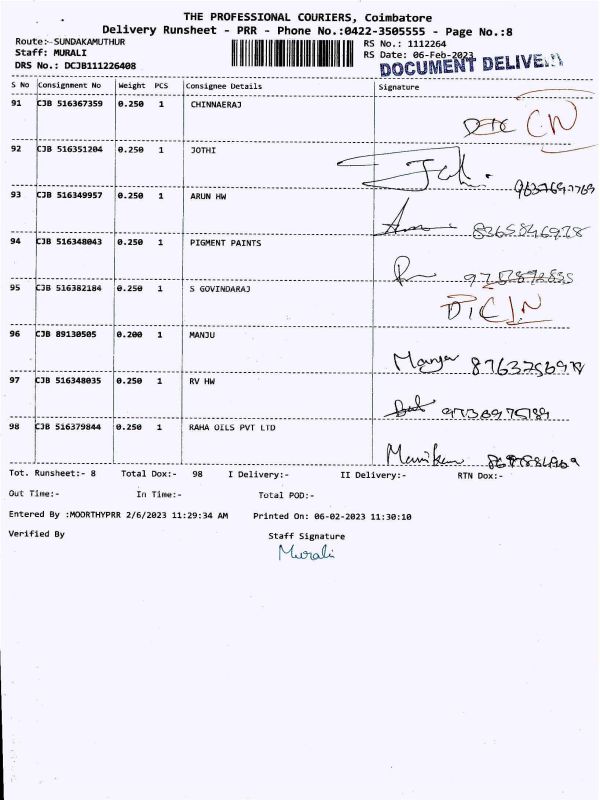 THE PROFESSIONAL COURIERS, Coimbatore
Delivery Runsheet - PRR - Phone No.:0422-3505555 - Page No.:8
Route:-SUNDAKAMUTHUR RS No.: 1112264
Staff: MURALI RS Date: 06-Feb-2023
DRS No.: DCJB111226408 DOCUMENT DELIVERY
S No Consignment No Weight PCS Consignee Details Signature
91 CJB 516367359 0.250 1 CHINNAERAJ
92 CJB 516351204 0.250 1 JOTHI
93 CJB 516349957 0.250 1 ARUN HW
94 CJB 516348043 0.250 1 PIGMENT PAINTS
95 CJB 516382184 0.250 1 S GOVINDARAJ
96 CJB 89130505 0.200 1 MANJU
97 CJB 516348035 0.250 1 RV HW
98 CJB 516379844 0.250 1 RAHA OILS PVT LTD
Tot. Runsheet:- 8 Total Dox:- 98 I Delivery:- II Delivery:- RTN Dox:-
Out Time:- In Time:- Total POD:-
Entered By :MOORTHYPRR 2/6/2023 11:29:34 AM Printed On: 06-02-2023 11:30:10
Verified By Staff Signature
Murali